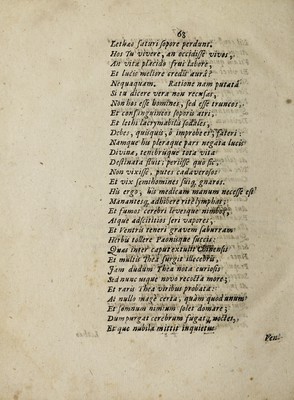 68
Lethæi saturi sopore perdunt.
Hos Tu vivere, an occidisse vives,
An vita placido frui labore,
Et lucis meliore credis aurâ?
Nequaquam. Ratione nam putatâ
Si tu dicere vera non recusas,
Non hos esse homines, sed esse truncos,
Et consanguineos soporis atri,
Et lethi lacrymabiles sodales,
Debes, quisquis, ô improbe es, fateri:
Namque his pleraque pars negata lucis
Divinæ, tenebrisque tota vita
Destinata fluit: periisse quò sic,
Non vixisse, putes cadaverosos
Et vix semihomines suiq; gnaros.
His ergo, his medicam manum necesse est
Manantesq; adhibere rite lymphas;
Et fumos cerebri levesque nimbos,
Atque adscititios seri vapores,
Et Ventris teneri gravem saburram
Herbis tollere Pæoniisque succis:
Quas inter caput extulit
Et multis Thea surgit illecebris,
Jam dudum Thea nota curiosis
Sed nunc usque novo recocta more;
Et raris Thea viribus probata:
At nullo magè certa, quàm quod unum
Et somnum nimium solet domare;
Dum purgat cerebrum fugatq; noctes,
Et quæ nubila mittit inquietus
Ven-